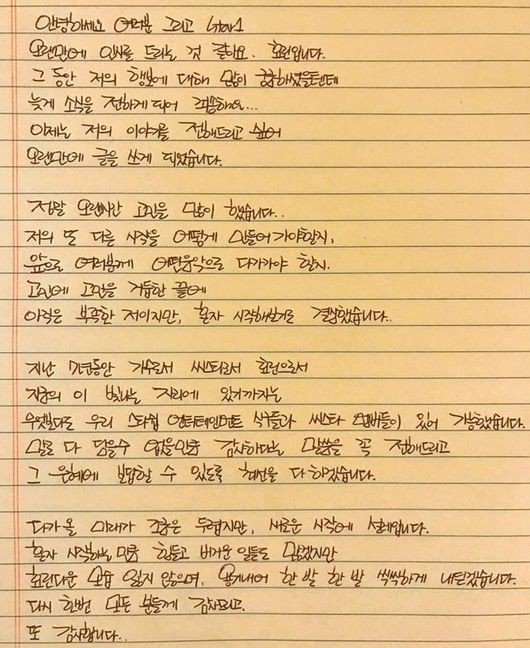 안녕하세요 여러분 그리고 star1
오랜만에 인사를 드리는 것 같아요. 효린입니다.
그 동안 저의 행보에 대해 많이 궁금하셨을텐데
늦게 소식을 전하게 되어 죄송해요...
이제는 저의 이야기를 전해드리고 싶어
오랜만에 글을 쓰게 되었습니다.
정말 오랜시간 고민을 많이 했습니다..
저의 또 다른 시작을 어떻게 만들어가야할지,
앞으로 여러분께 어떤음악으로 다가가야 할지.
고민에 고민을 거듭한 끝에
아직은 부족한 저이지만, 혼자 시작해보기로 결심했습니다..
지난 7년동안 가수로서 씨스타로서 효린으로서
지금의 이 빛나는 자리에 있기까지는
무엇보다도 우리 스타쉽 엔터테인먼트 식구들과 씨스타 멤버들이 있어 가능했습니다.
말로 다 담을수 없을만큼 감사하다는 말씀을 꼭 전해드리고
그 은혜에 보답할 수 있도록 최선을 다 하겠습니다.
다가올 미래가 조금은 두렵지만, 새로운 시작에 설레입니다.
혼자 시작하는 만큼 힘들고 버거운 일들도 많겠지만
효린다운 모습 잃지 않으며, 용기내어 한 발 한 발 씩씩하게 내딛겠습니다.
다시 한번 모든 분들께 감사드리고.
또 감사합니다..